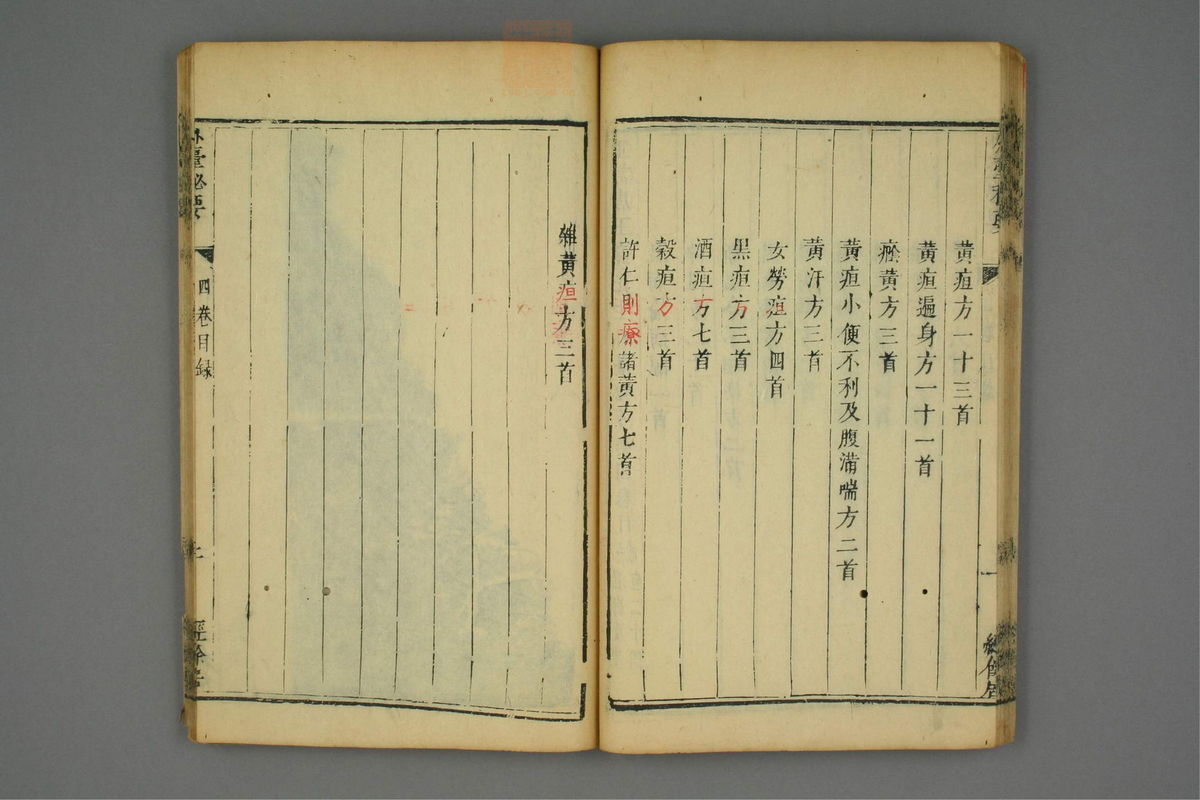 黄疸方一十三首
黄疸遍身方一十一首
瘀黄方三首
黄疸小便不利及腹滿喘方二首
黄汗方三首
女勞疸方四首
黒疸方三首
酒疸方七首
穀疸方三首
許仁則療諸黄方七首
雜黄疸方三首
外臺秘要
四卷目録
上
經餘居